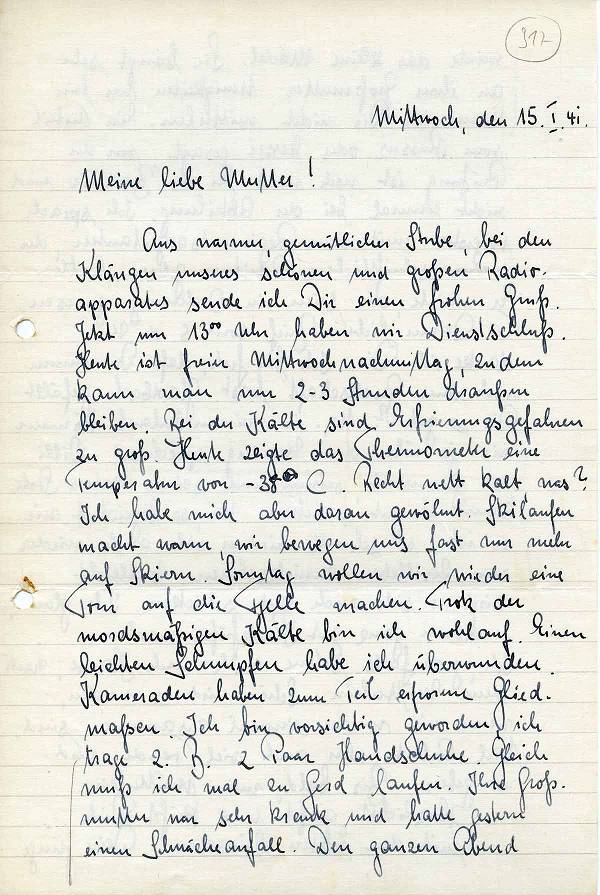 317
Mittwoch, den 15. I. 41.
Meine liebe Mutter!
Aus warmer, gemütlicher Stube bei den
Klängen unseres schönen und großen Radio-
apparates sende ich Dir einen frohen Gruß.
Jetzt um 13⁰⁰ Uhr haben wir Dienstschluß.
Heute ist freier Mittwochnachmittag, zudem
kann man nur 2-3 Stunden draußen
bleiben. Bei der Kälte sind Erfrierungsgefahren
zu groß. Heute zeigte das Thermometer eine
Temperatur von -38⁰ C. Recht nett kalt was?
Ich habe mich aber daran gewöhnt. Skilaufen
macht warm, wir bewegen uns fast nur mehr
auf Skiern. Sonntag wollen wir wieder eine
Tour auf die Fjelle machen. Trotz der
mordsmäßigen Kälte bin ich wohlauf. Einen
leichten Schnupfen habe ich überwunden.
Kameraden haben zum Teil erfrorene Glied-
maßen. Ich bin vorsichtig geworden, ich
trage z. B. 2 Paar Handschuhe. Gleich
muß ich mal zu Gerd laufen. Ihre Groß-
mutter war sehr krank und hatte gestern
einen Schwächeanfall. Den ganzen Abend